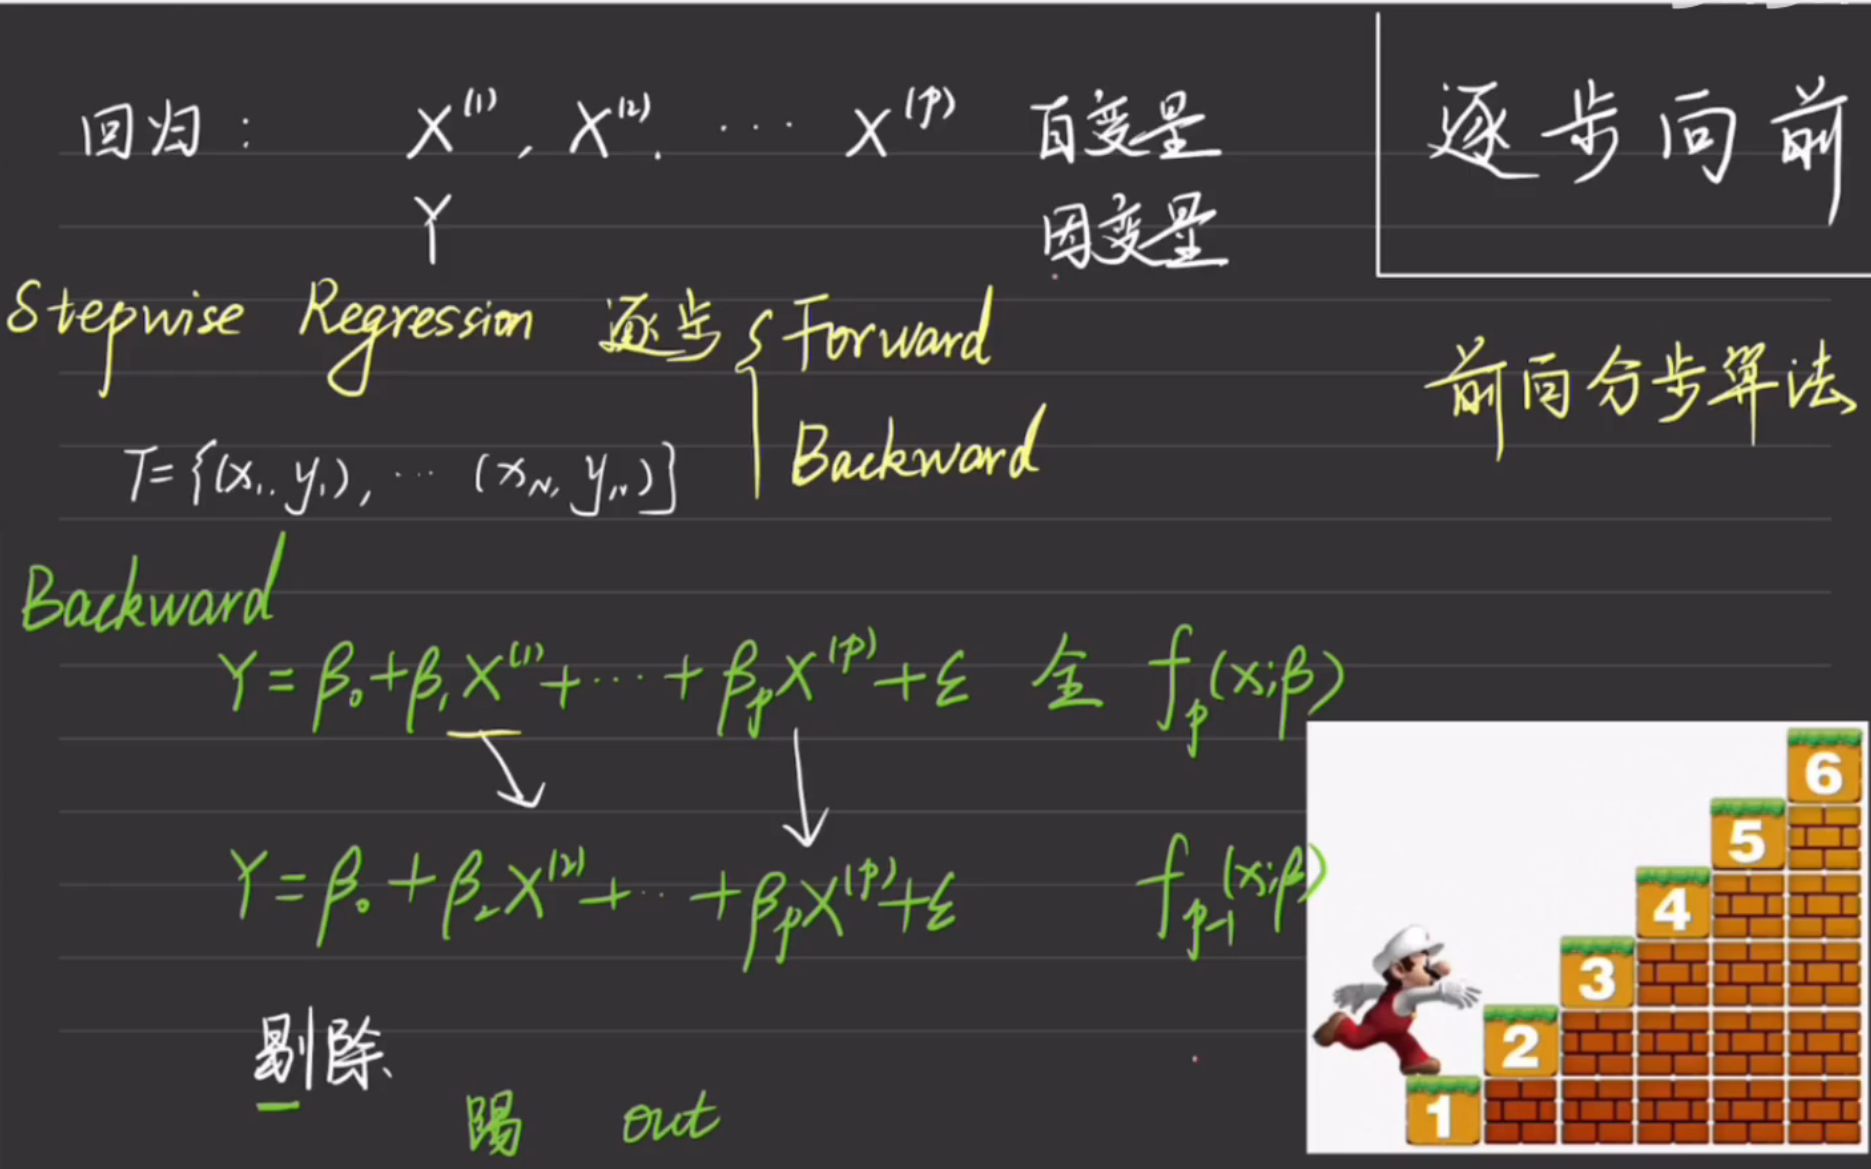 回归： X^(1), X^(2), ... X^(p) 自变量
Y 因变量
逐步向前
Stepwise Regression 逐步 { Forward
Backward
前向分步算法
T={(x₁, y₁), ... (x_N, y_N)}
Backward
Y = β₀+β₁X^(1)+...+β_pX^(p)+ε 全 f_p(x;β)
Y = β₀+β₂X^(2)+...+β_pX^(p)+ε f_{p-1}(x;β)
剔除
踢 out
6
5
4
3
2
1